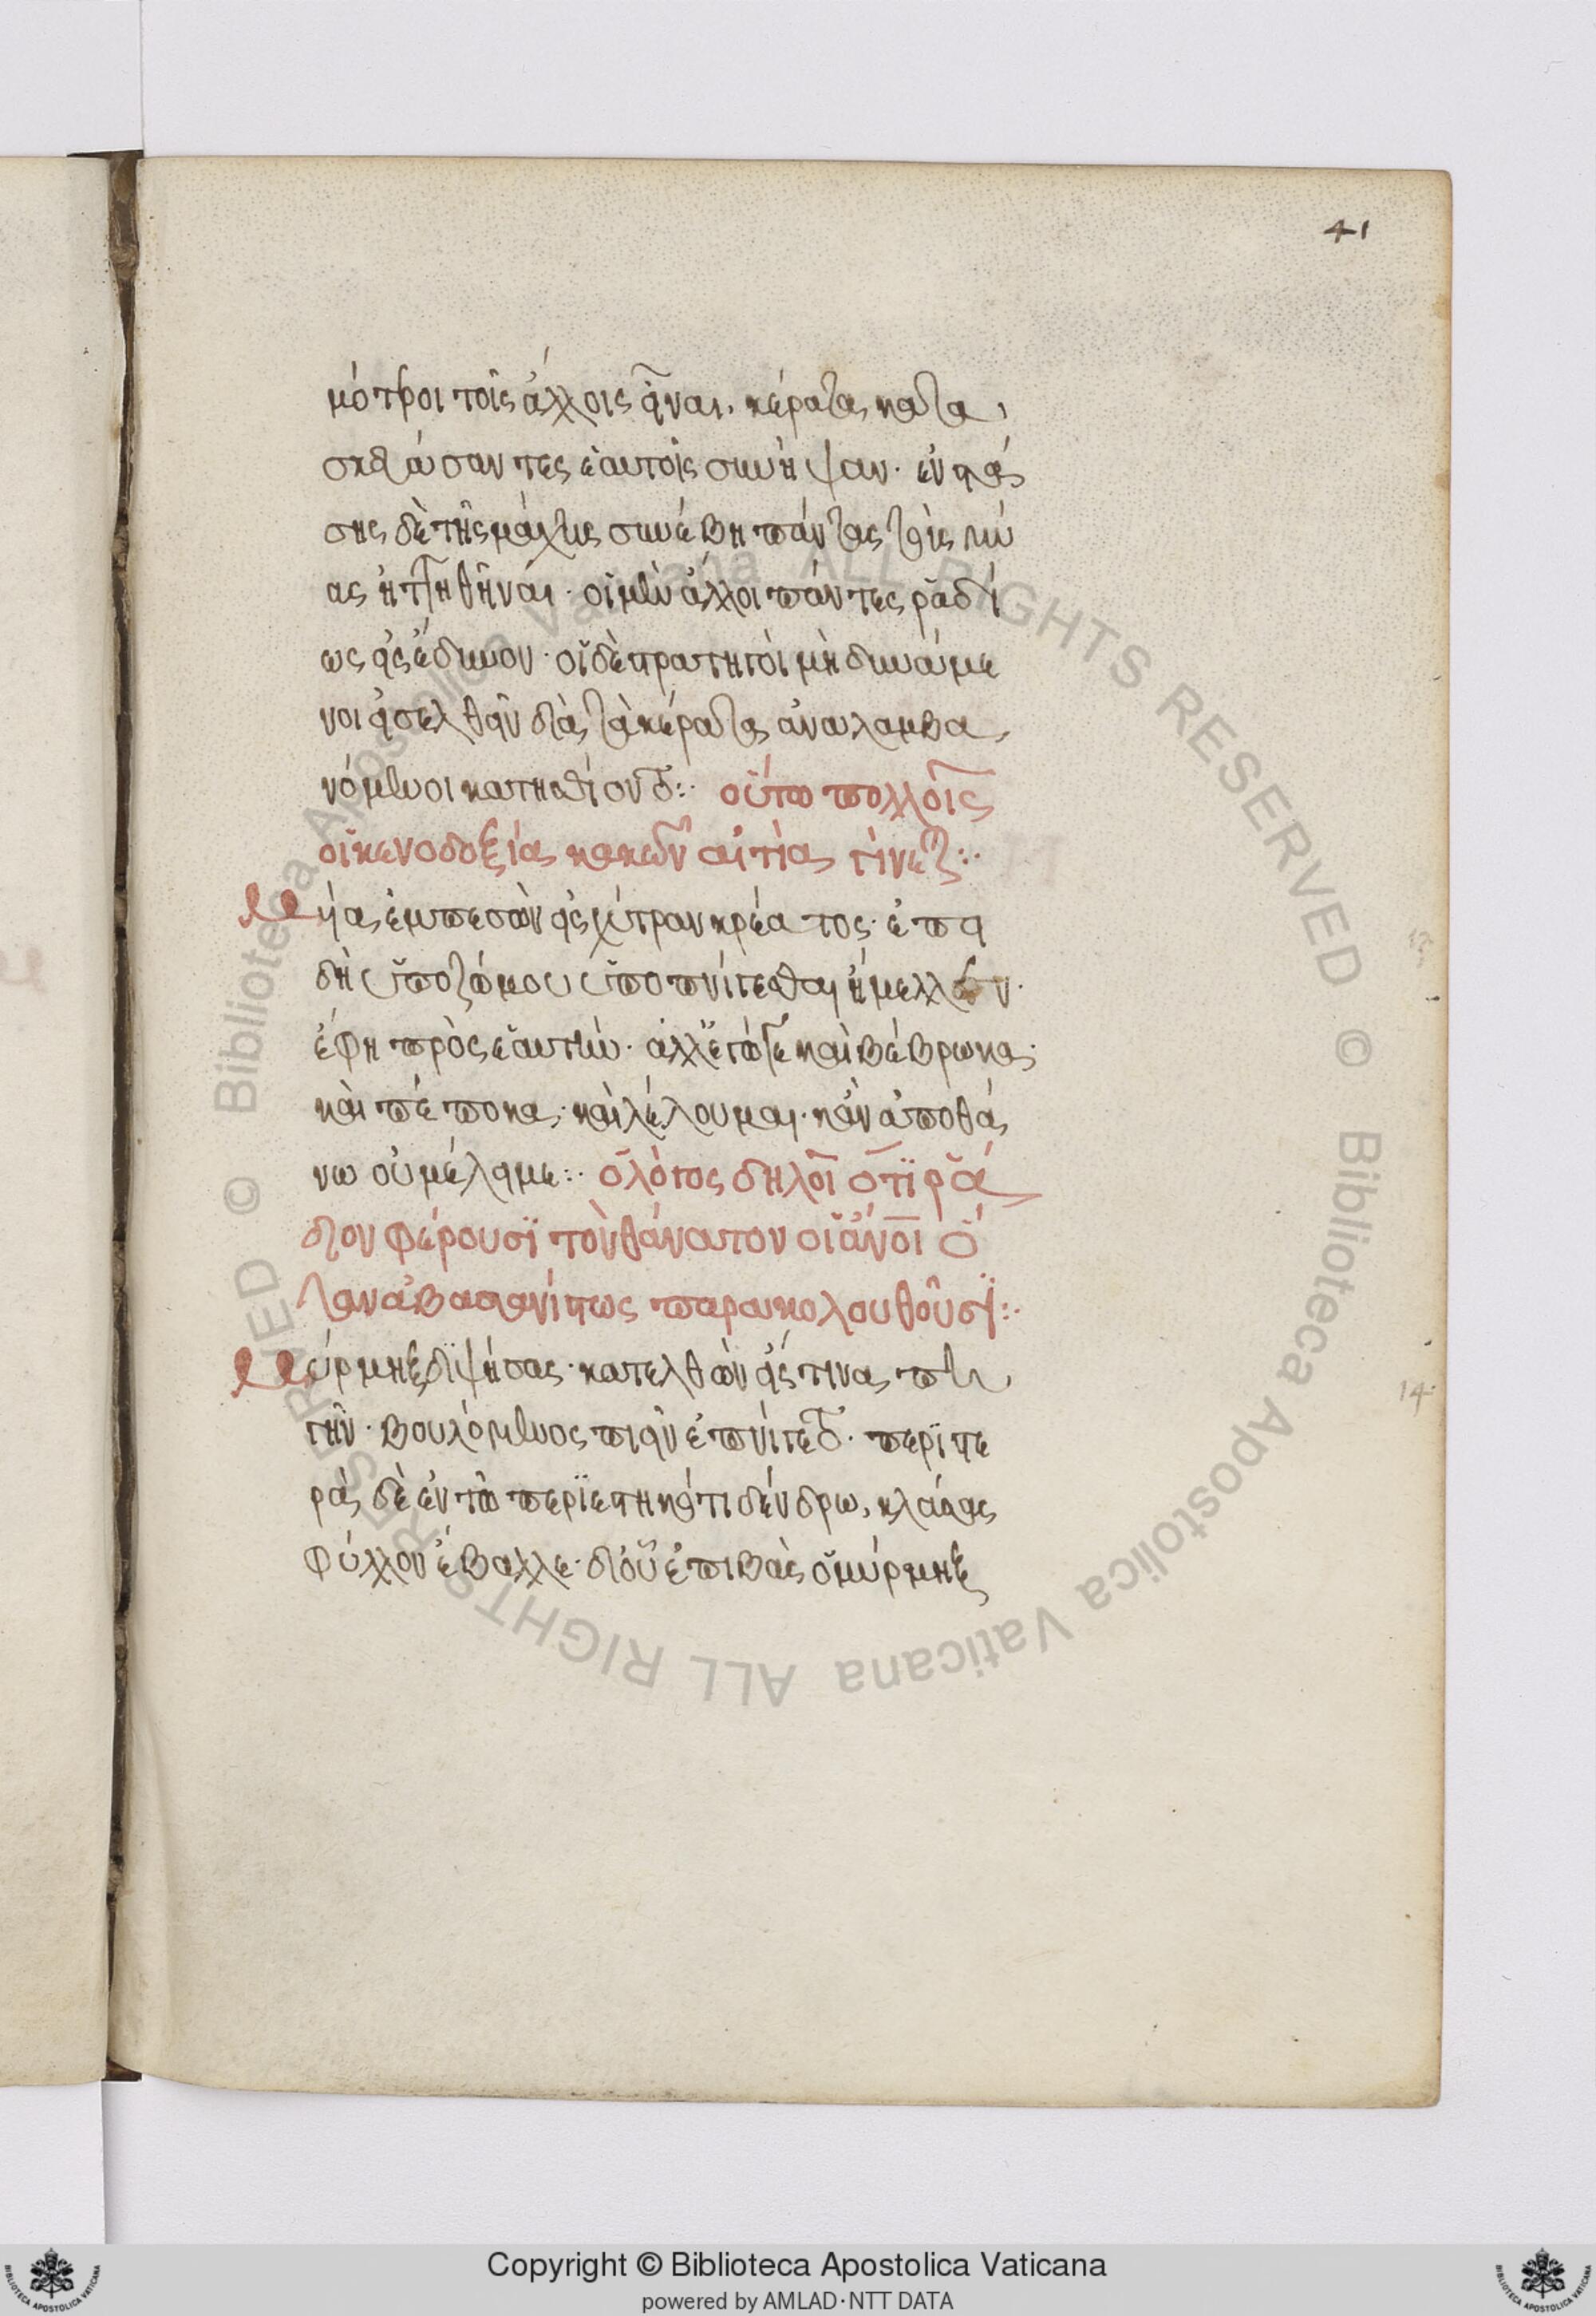 41
μότεροι τοῖς ἄλλοις εἶναι, κέρατα κατα
σκευάσαντες ἑαυτοῖς συνῆψαν· ἐνστά
σης δὲ τῆς μάχης συνέβη πάντας τοὺς μύ
ας ἡττηθῆναι· οἱ μὲν ἄλλοι πάντες ῥαδί
ως εἰσέδυνον· οἱ δὲ στρατηγοὶ μὴ δυνάμε
νοι εἰσελθεῖν διὰ τὰ κέρατα ἀναλαμβα
νόμενοι κατησθίοντο:· οὕτω πολλοῖς
οἱ κενοδοξία κακῶν αἰτία γίνεται:·
Μυῖα ἐμπεσὼν εἰς χύτραν κρέατος· ἐπει
δὴ ὑπὸ ζωμοῦ ὑποπνίγεσθαι ἤμελλεν·
ἔφη πρὸς ἑαυτήν· ἀλλ' ἔγωγε καὶ βέβρωκα·
καὶ πέποκα· καὶ λέλουμαι· κἂν ἀποθά
νω οὐ μέλει με:· ὁ λόγος δηλοῖ ὅτι ῥᾴ
διον φέρουσι τὸν θάνατον οἱ ἄνοι ὅ
ταν ἀβασανίστως παρακολουθοῦσι:·
Μύρμηξ διψήσας· κατελθὼν εἴς τινα πη
γὴν· βουλόμενος πιεῖν ἐπνίγετο· περιστε
ρὰ δὲ ἐν τῷ περιεστηκότι δένδρω, κλάσας
φύλλον ἔβαλλε· δι' οὗ ἐπιβὰς ὁ μύρμηξ
14
Copyright © Biblioteca Apostolica Vaticana
powered by AMLAD·NTT DATA